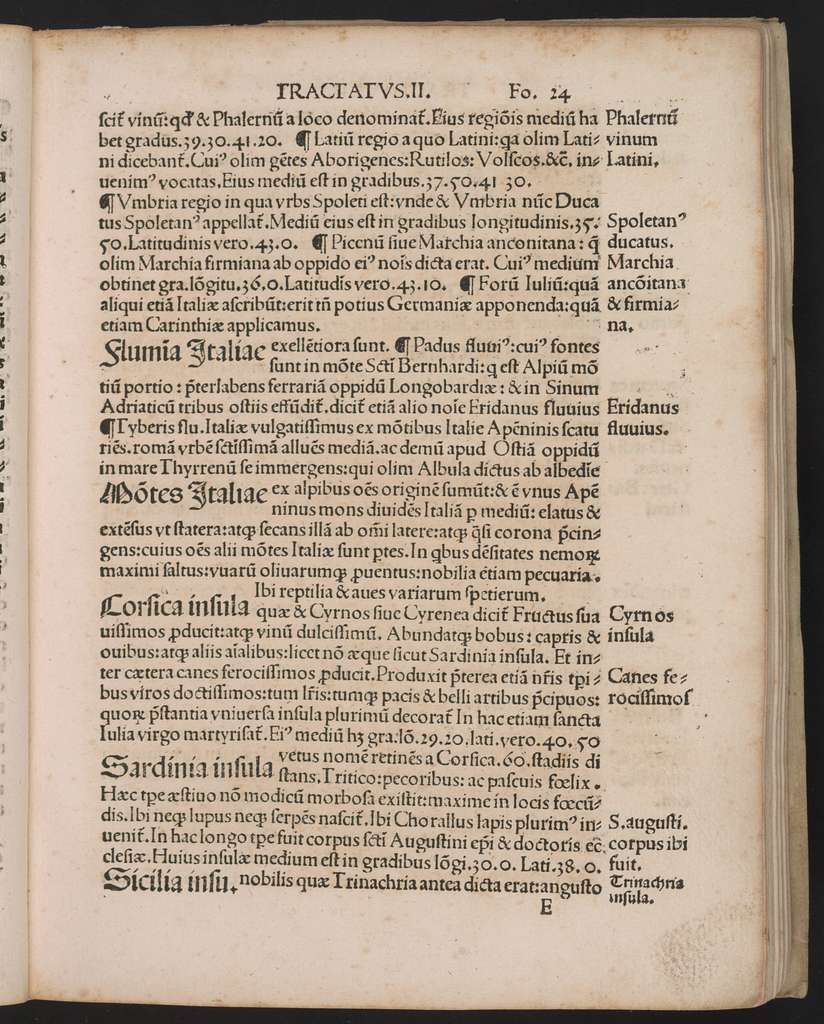 TRACTATVS.II. Fo. 24
ſcit̃ vinũ:qđ & Phalernũ a loco denominat̃.Eius regiõis mediũ ha Phalernũ
bet gradus.39.30.41.20. ¶ Latiũ regio a quo Latini:qa olim Lati⸗ vinum
ni dicebant̃.Cuiꝰ olim gẽtes Aborigenes:Rutilos: Volſcos.&c̃. in⸗ Latini.
uenimꝰ vocatas.Eius mediũ eſt in gradibus.37.50.41 30.
¶ Vmbria regio in qua vrbs Spoleti eſt:vnde & Vmbria nũc Duca
tus Spoletanꝰ appellat̃.Mediũ eius eſt in gradibus longitudinis.35. Spoletanꝰ
50.Latitudinis vero.43.0. ¶ Picenũ ſiue Marchia anconitana: q̃ ducatus.
olim Marchia firmiana ab oppido eiꝰ nois dicta erat. Cuiꝰ medium Marchia
obtinet gra.lõgitu.36.0.Latitudis vero.43.10. ¶ Forũ Iuliũ:quã ancõitana
aliqui etiã Italiæ aſcribũt:erit tñ potius Germaniæ apponenda:quã & firmia⸗
etiam Carinthiæ applicamus. na.
Flumĩa Italiae exellẽtiora ſunt. ¶ Padus fluuiꝰ:cuiꝰ fontes
ſunt in mõte Scti Bernhardi: q̃ eſt Alpiũ mõ
tiũ portio: p̃terlabens ferrariã oppidũ Longobardiæ: & in Sinum
Adriaticũ tribus oſtiis effũdit̃.dicit̃ etiã alio noĩe Eridanus fluuius Eridanus
¶ Tyberis flu.Italiæ vulgatiſſimus ex mõtibus Italie Apẽninis ſcatu fluuius.
riẽs.romã vrbẽ ſctiſſimã alluẽs mediã.ac demũ apud Oſtiã oppidũ
in mare Thyrrenũ ſe immergens:qui olim Albula dictus ab albedie
Mõtes Italiae ex alpibus oẽs originẽ ſumũt:& ẽ vnus Apẽ
ninus mons diuidẽs Italiã ꝑ mediũ: elatus &
extẽſus vt ſtatera:atqꝫ ſecans illã ab om̃i latere:atqꝫ q̃ſi corona p̃cin⸗
gens:cuius oẽs alii mõtes Italiæ ſunt ꝑtes.In qbus dẽſitates nemoꝝ
maximi ſaltus:vuarũ oliuarumqꝫ ꝓuentus:nobilia etiam pecuaria.
Ibi reptilia & aues variarum ſpetierum.
Corſica inſula quæ & Cyrnos ſiue Cyrenea dicit̃ Fructus ſua Cyrnos
uiſſimos ꝓducit:atqꝫ vinũ dulciſſimũ. Abundatqꝫ bobus: capris & inſula
ouibus:atqꝫ aliis aĩalibus:licet nõ æque ſicut Sardinia inſula. Et in⸗
ter cætera canes ferociſſimos ꝓducit.Produxit p̃terea etiã nr̃is tp̃i⸗ Canes fe⸗
bus viros doctiſſimos:tum lr̃is:tumqꝫ pacis & belli artibus p̃cipuos: rociſſimoſ
quoꝝ p̃ſtantia vniuerſa inſula plurimũ decorat̃ In hac etiam ſancta
Iulia virgo martyriſat̃.Eiꝰ mediũ hꝫ gra.lõ.29.20.lati.vero.40.50
Sardinia inſula vetus nomẽ retinẽs a Corſica.60.ſtadiis di
ſtans.Tritico:pecoribus: ac paſcuis fœlix.
Hæc tꝑe æſtiuo nõ modicũ morboſa exiſtit:maxime in locis fœcũ⸗
dis.Ibi neqꝫ lupus neqꝫ ſerpẽs naſcit̃.Ibi Chorallus lapis plurimꝰ in⸗ S.auguſti.
uenit̃.In hac longo tꝑe fuit corpus ſcti Auguſtini ep̃i & doctoris ec corpus ibi
cleſiæ.Huius inſulæ medium eſt in gradibus lõgi.30.0. Lati.38.0. fuit.
Sicilia inſu. nobilis quæ Trinachria antea dicta erat:anguſto Trinachria
inſula.
E